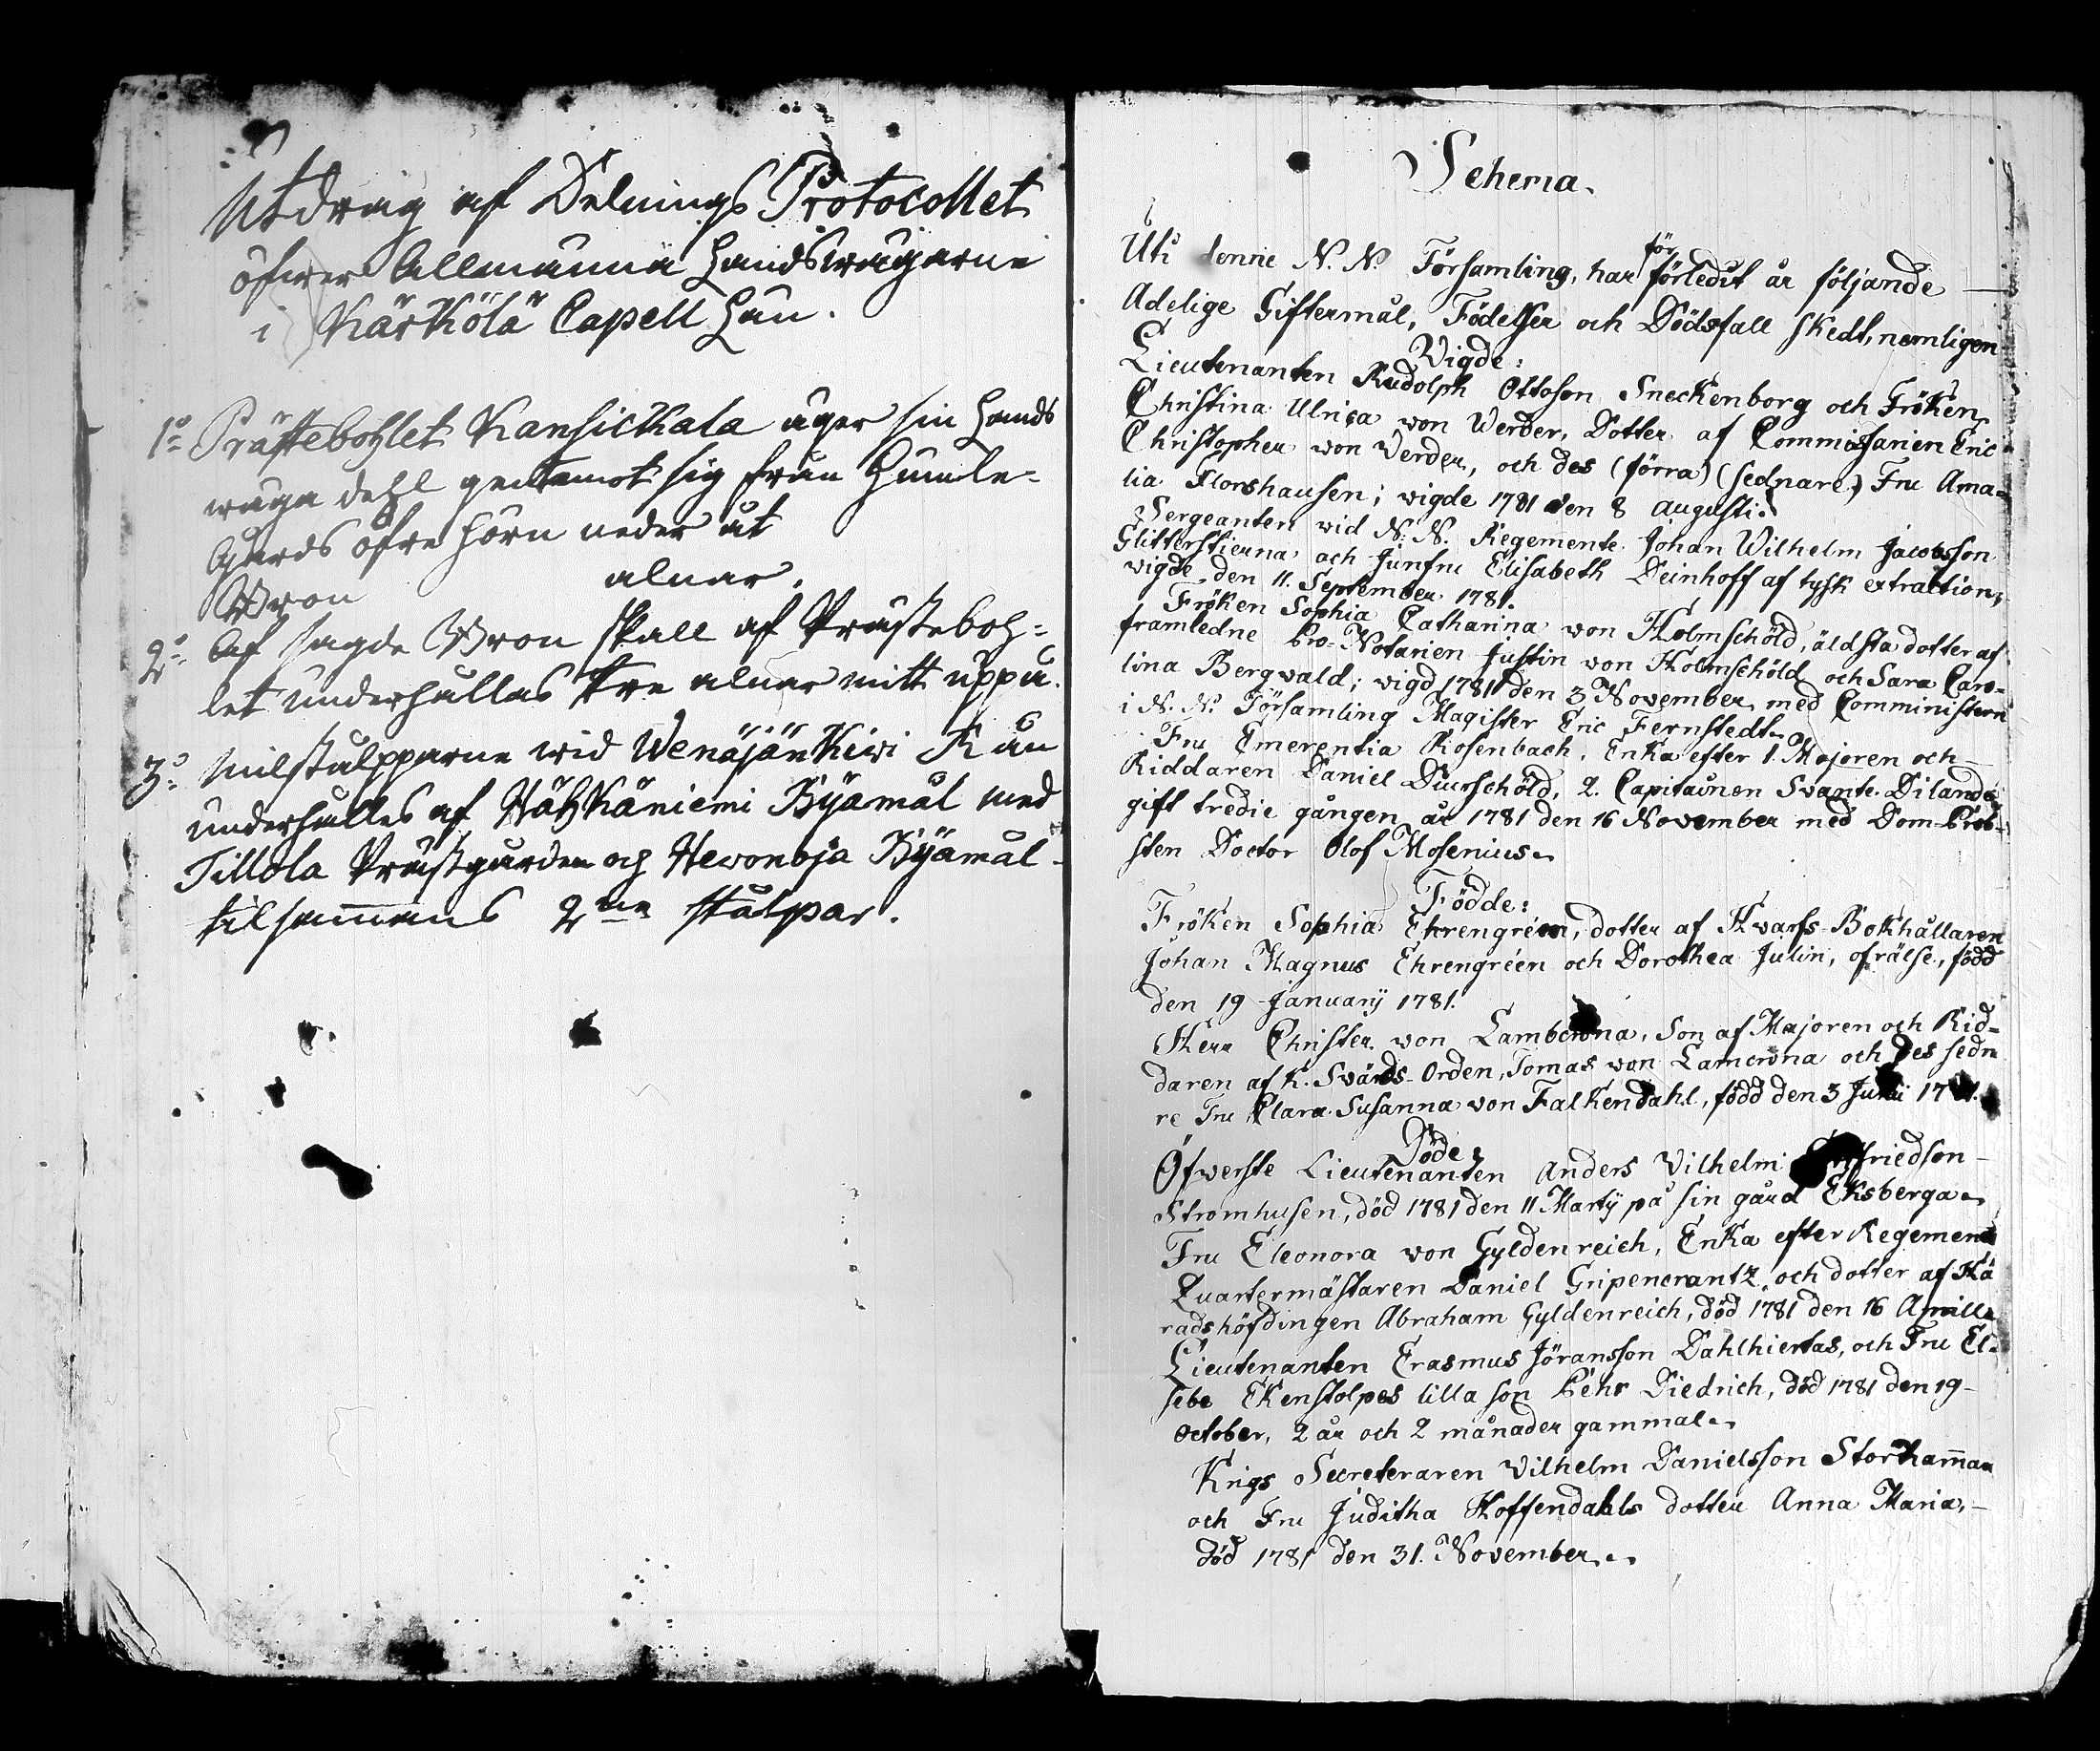 Utdrag af Delnings Protocollet
öfwer Allmänna Landswägarne
i Kärkölä Capell Län.
1o Prästebohlet Kansickala äger sin Lands
wägs dehl gentemot sig från Humle-
gårds öfre hörn neder åt
Bron alnar.
2o Af sagde Bron skall af Prästeboh-
let underhållas tre alnar mitt uppå.
3o Milstålpparne wid Wenäjän Kiwi
underhålles af Hähkäniemi Byamål med
Tillola Prästgården och Hewonoja Byamål
tilsammans 2ne stålpar.
Schema.
Uti denne N. N. Församling, har för
förledit år följande
Adelige Giftermål, Födelser och Dödsfall skedt, nemligen
Vigde:
Lieutenanten Rudolph Ottoson Sneckenborg och Fröken
Christina Ulrica von Werder, Dotter af Commissarien Eric
Christopher von Verder, och des (förra) (sednare) Fru Ama-
lia Florshausen; vigde 1781 den 8 augusti.
Sergeanten wid N. N. Regemente Johan Wilhelm Jacobsson
Glitterstierna och Junfru Elisabeth Deinhoff af tysk extraction,
vigde den 11. September 1781.
Fröken Sophia Catharina von Holmschöld, äldsta dotter af
framledne Pro-Notarien Justin von Holmschöld och Sara Caro-
lina Bergwald; vigd 1781 den 3 November med Comministern
i N. N. Församling Magister Eric Fernstedt.
Fru Emerentia Rosenbach, Enka efter 1. Majoren och
Riddaren Daniel Duurschöld, 2. Capitainen Svante Dilande,
gift tredie gången år 1781 den 16 November med Dom-Prob-
sten Doctor Olof Mosenius.
Födde:
Fröken Sophia Ehrengréen, dotter af Hwarfs-Bokhållaren
Johan Magnus Ehrengréen och Dorothea Julin, ofrälse, född
den 19 Januarij 1781.
Herr Christer von Lambcrona, Son af Majoren och Rid-
daren af K. Svärds-Orden, Tomas von Lamcrona och des sedn
re Fru Clara Susanna von Falkendahl, född den 3 1781.
Döde:
Öfwerste Lieutenanten Anders Vilhelm
Stromhusen, död 1781 den 11 Martij på sin gård Eksberga.
Fru Eleonora von Gyldenreich, Enka efter Regements
Quartermästaren Daniel Gripencrantz, och dotter af Hä
radshöfdingen Abraham Gyldenreich, död 1781 den 16 Aprill.
Lieutenanten Erasmus Jöransson Dahlhiertas, och Fru El-
sebe Ekenstolpes lilla son Pehr Diedrich, död 1781 den 19
October, 2 år och 2 månader gammal.
Krigs Secreteraren Vilhelm Danielsson Storhamman
och Fru Juditha Hoffendahls dotter Anna Maria,
död 1781 den 31. November.